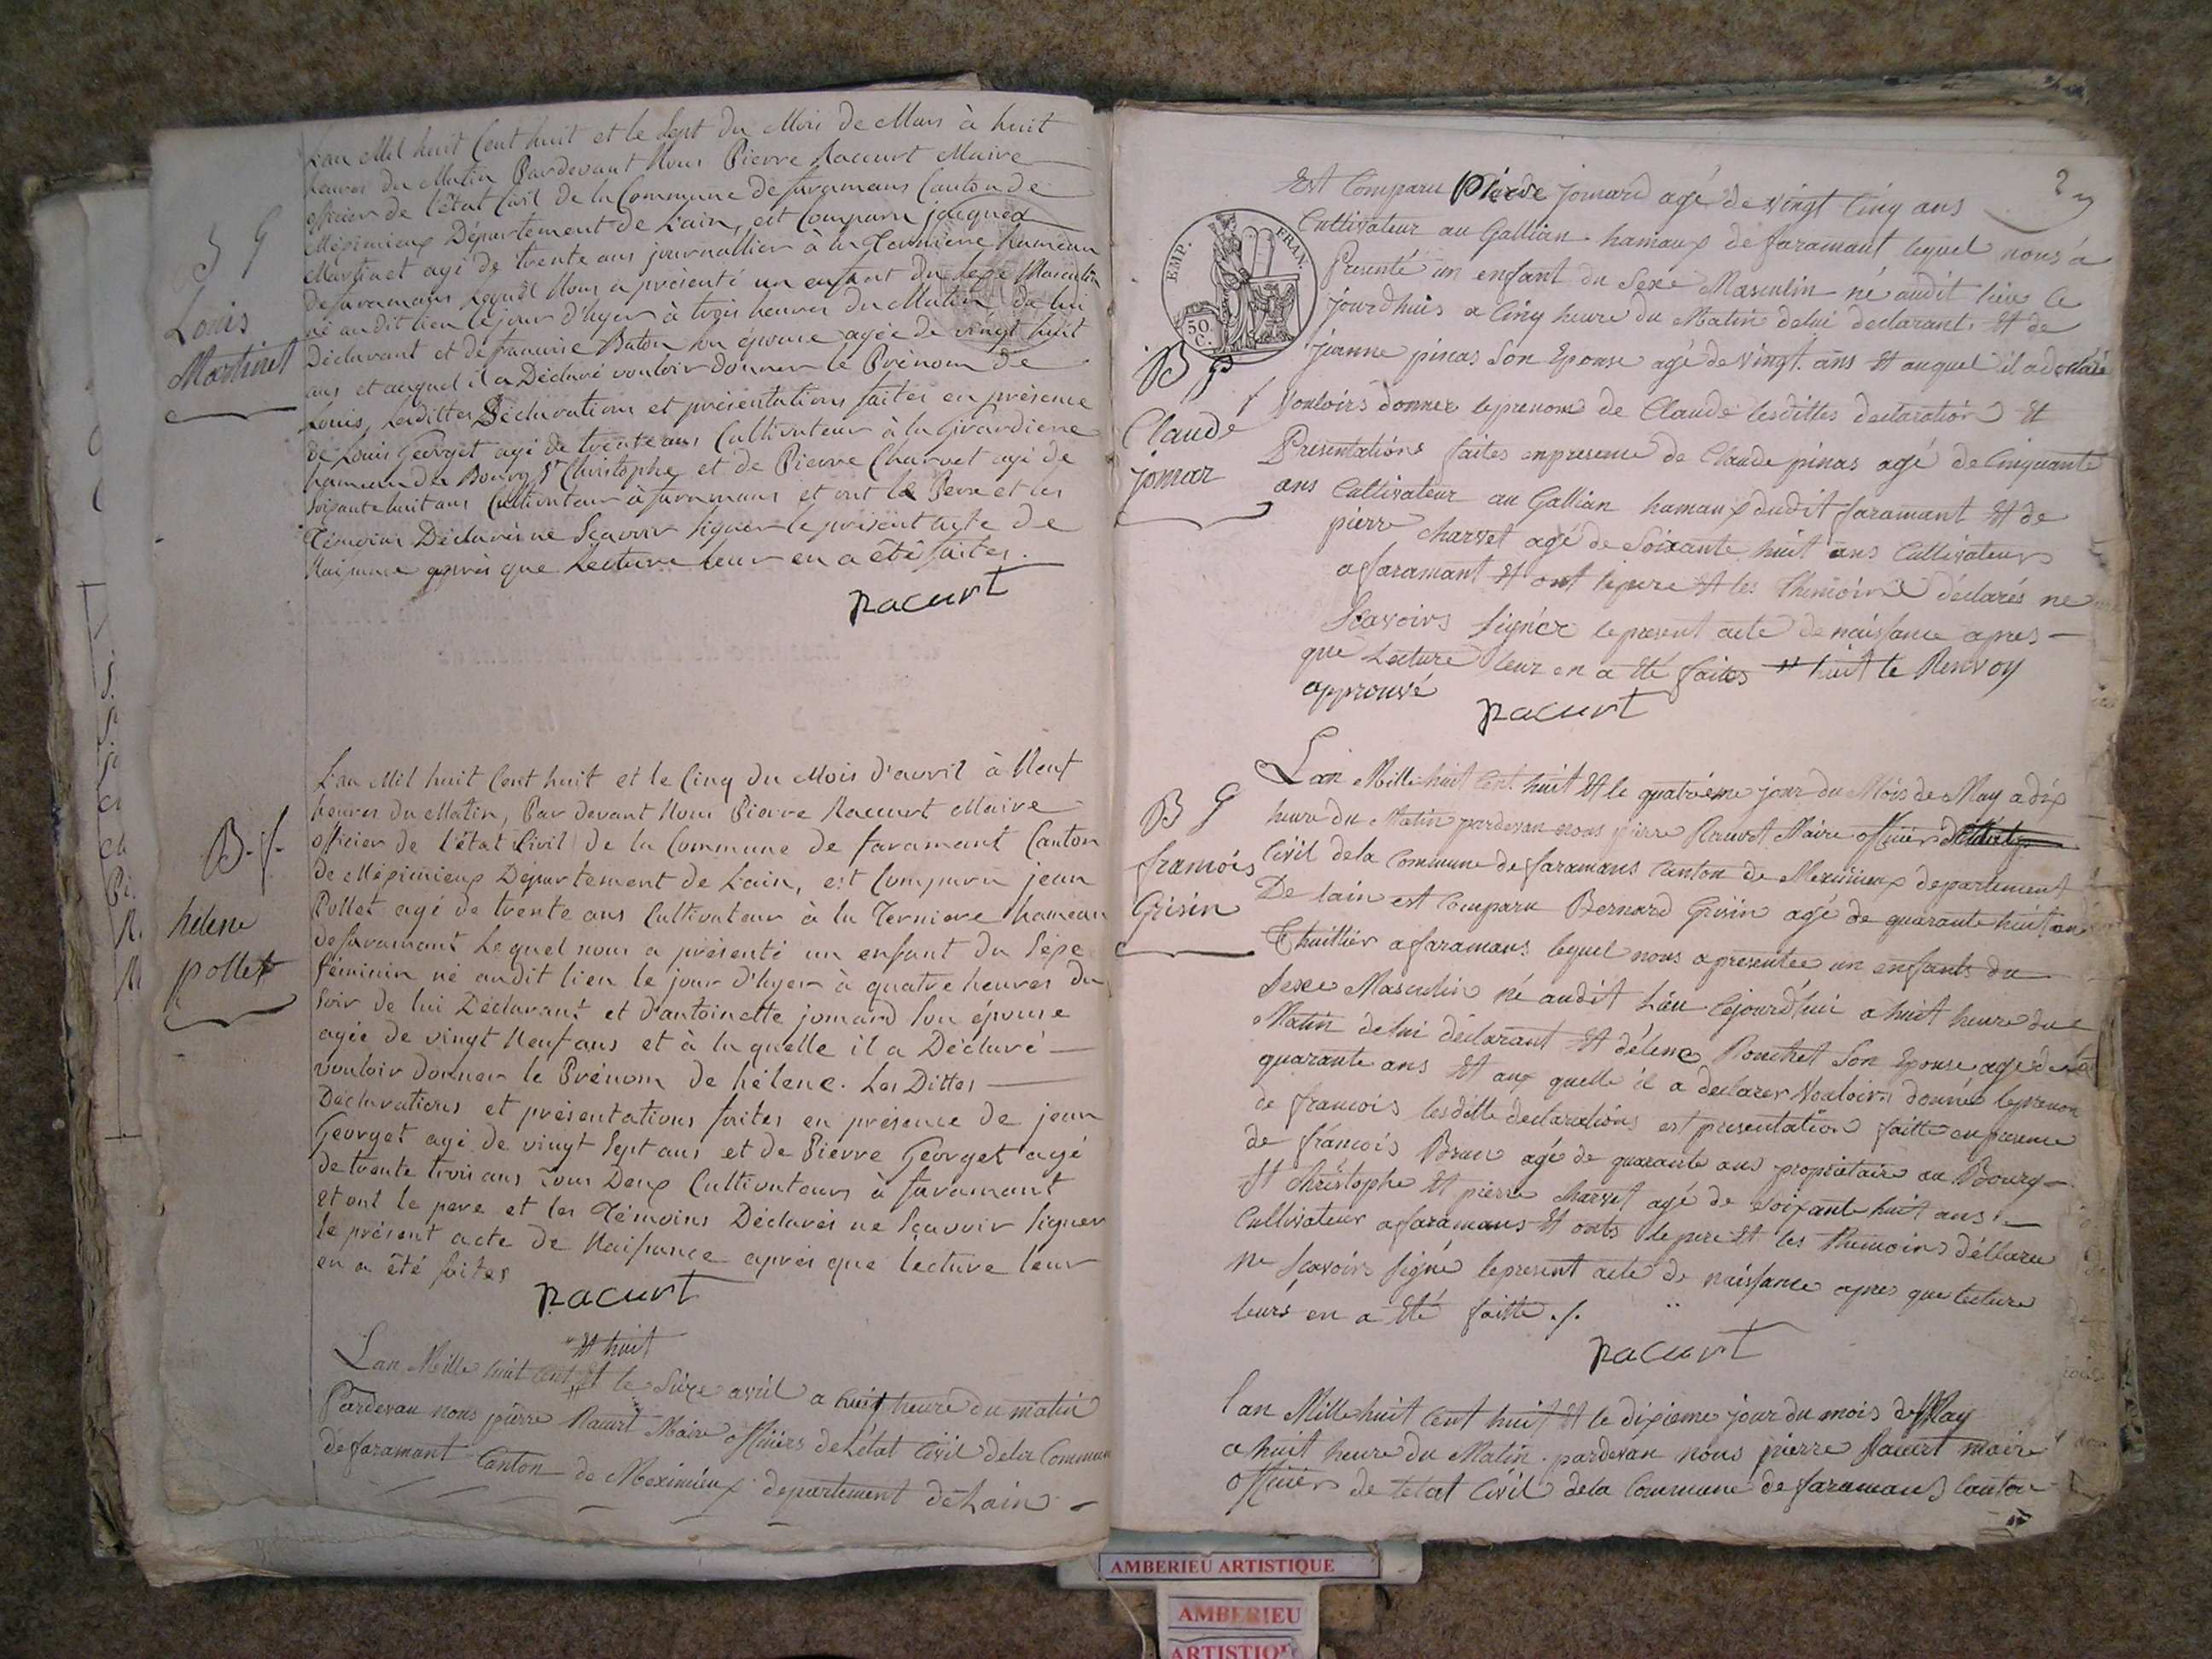 L'an Mil huit Cent huit et le Sept du Mois de Mars à huit
heures du Matin Pardevant Nous Pierre Racurt Maire
officier de l'état Civil de la Commune de faramans Canton de
Méximieux Département de L'ain, est Comparu jacques
Martinet agé de trente ans journallier à la Ternierre hameau
de faramans Lequel Nous a présenté un enfant du Sexe Masculin
né audit lieu le jour d'hyer à trois heures du Matin de lui
Déclarant et de francoise Baton son épouse agée de vingt huit
ans et auquel il a Déclaré vouloir donner le Prénom de
Louis, Lesdittes Déclarations et présentations faites en présence
de Louis Georget agé de trente ans Cultivateur à la Girardiere
hameau du Bourg St Christophe et de Pierre Charvet agé de
soixante huit ans Cultivateur à faramans et ont le Pere et les
Témoins Déclarés ne Scavoir signer le présent acte de
Naissance après que Lecture leur en a été faites.
racurt
5 G
Louis
Martinet
L'an Mil huit Cent huit et le Cinq du Mois d'avril à Neuf
heures du Matin, Par devant Nous Pierre Racurt Maire
officier de l'état Civil de la Commune de faramant Canton
de Méximieux Département de L'ain, est Comparu jean
Pollet agé de trente ans Cultivateur à la Terniere hameau
de faramant Lequel nous a présenté un enfant du Sexe
féminin né audit lieu le jour d'hyer à quatre heures du
Soir de lui Déclarant et d'antoinette jomard son épouse
agée de vingt Neuf ans et à la quelle il a Déclaré
vouloir donner le Prénom de hélene. Les Dittes
Déclarations et présentations faites en présence de jean
Georget agé de vingt Sept ans et de Pierre Georget agé
de trente trois ans Tous Deux Cultivateurs à faramant
et ont le pere et les Témoins Déclarés ne Sçavoir signer
le présent acte de Naissance après que lecture leur
en a été faites
racurt
B. f.
hélene
pollet
Et huit
Lan Mille huit Cent Et le Sixe avril a huit heure du matin
Pardevan nous pierre Racurt Maire officiers de L'état Civil dela Commune
de faramant Canton de Meximieux departement de Lain
2
EMP. FRAN.
50 C.
Est Comparu Pierre jomard agé de vingt Cinq ans
Cultivateur au Gallian hamaux de faramant lequel nous a
Presenté un enfant du Sexe Masculin né audit lieu le
jourdhuis a Cinq heure du Matin delui declarant Et de
jeanne pinas Son Epouse agé de vingt ans Et auquel il a declaré
Vouloirs donner leprenom de Claude lesdittes declaration Et
Presentations faites enpresence de Claude pinas agé de Cinquante
ans Cultivateur au Gallian hamaux dudit faramant Et de
pierre Charvet agé de Soixante huit ans Cultivateur
a faramant Et ont lepere Et les Themoins déclarés ne
Scavoirs Signér lepresent acte de naissance apres
que Lecture leur en a Eté faites huit le Renvoy
approuvé
racurt
B G
Claude
jomar
Lan Mille huit Cent huit Et le quatrième jour du Mois de May a dix
heure du Matin pardevan nous pierre Racurt Maire officier
Civil dela Commune de faramans Canton de Meximieux departement
De lain est Comparu Bernard Grisin agé de quarante huit an
Thuillier a faramans lequel nous a presentée un enfants du
Sexe Masculin né audit Lieu Cejourd'hui a huit heure du
Matin delui déclarant Et délene Ronchet Son Epouse agé de
quarante ans Et aux quelle il a declarer Vouloirs donner leprenom
de francois lesditte declarations est presentation faitte enpresence
de francois Brun agé de quarante ans propriétaire au Bourg
St Christophe Et pierre Charvet agé de Soixante huit ans
Cultivateur a faramans Et onts lepere Et les Themoins déllare
ne Scavoirs Signé lepresent acte de naissance apres que lecture
leurs en a Eté faitte ./.
racurt
B G
francois
Grisin
lan Mille huit Cent huit Et le dixieme jour du mois de May
a huit heure du Matin pardevan nous pierre Racurt maire
officier de l'état Civil dela Commune de faramans Canton
AMBERIEU ARTISTIQUE
AMBERIEU
ARTISTIQUE